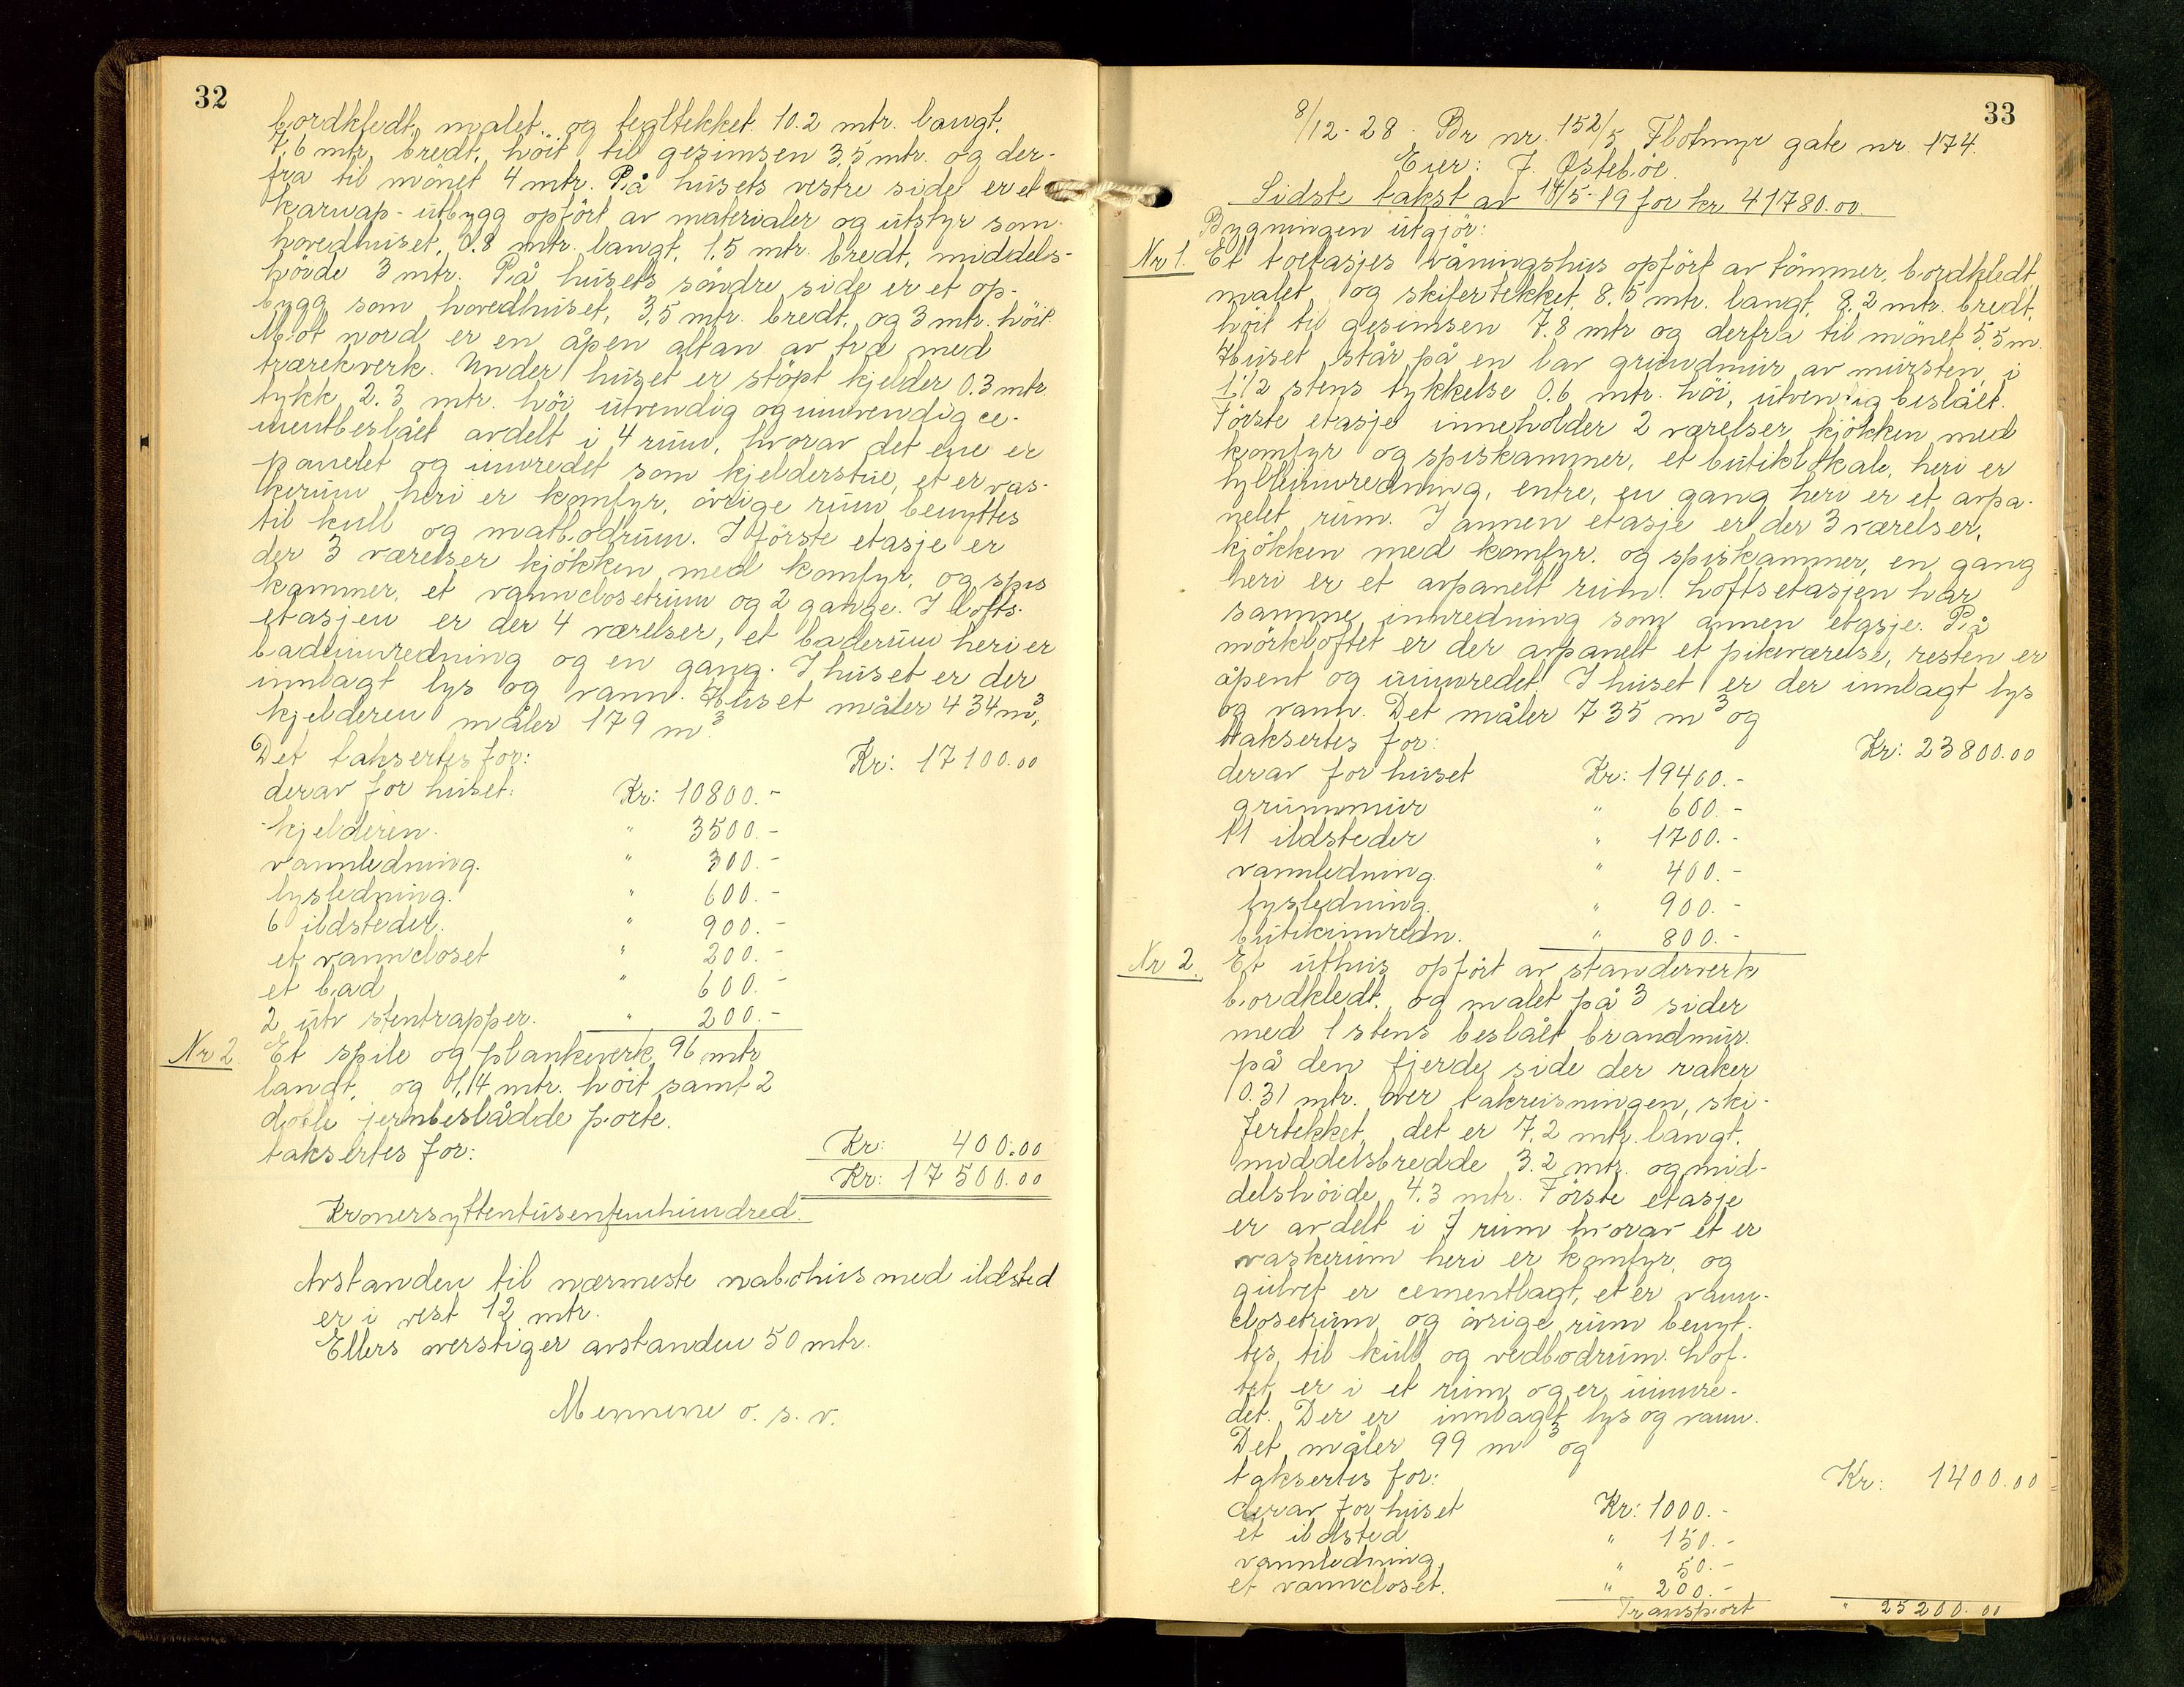 32
bordkledt, malet, og tegltekket. 10.2 mtr. langt,
7,6 mtr. bredt, höit til gesimsen 3,5 mtr. og der-
fra til mönet 4 mtr. På husets vestre side er et
karnap-utbygg opfört av materialer og utstyr som
hovedhuset, 0.8 mtr. langt, 1,5 mtr. bredt, middels-
höide 3 mtr. På husets söndre side er et op-
bygg som hovedhuset, 3,5 mtr. bredt, og 3 mtr. höit.
Mot nord er en åpen altan av træ med
trærekverk. Under huset er stöpt kjelder 0.3 mtr.
tykk, 2.3 mtr. höi, utvendig og innvendig ce-
mentbeslået avdelt i 4 rum, hvorav det ene er
panelet og innredet som kjelderstue, et er vas-
kerum heri er komfyr, övrige rum benyttes
til kull og matbodrum. I förste etasje er
der 3 værelser kjökken med komfyr, og spis
kammer, et vannclosetrum og 2 gange. I lofts-
etasjen er der 4 værelser, et baderum heri er
badeinnredning og en gang. I huset er der
innlagt lys og vann. Huset måler 434 m³,
kjelderen måler 179 m³.
Det taksertes for: Kr: 17100.00
derav for huset: Kr: 10800.-
kjelderen. " 3500.-
vannledning. " 300.-
lysledning. " 600.-
6 ildsteder. " 900.-
et vanncloset " 200.-
et bad " 600.-
2 utv stentrapper. " 200.-
Nr 2. Et spile og plankeverk, 96 mtr
langt, og 1,14 mtr. höit samt 2
doble jernbeslådde porte.
taksertes for: Kr: 400.00
Kr: 17500.00
Kronersyttentusenfemhundred.
Avstanden til nærmeste nabohus med ildsted
er i vest 12 mtr.
Ellers overstiger avstanden 50 mtr.
Mennene o. s. v.
33
8/12-28. Br nr. 152/5 Flotmyr gate nr. 174.
Eier: J. Østeböe.
Sidste takst av 14/5-19 for kr 41780.00.
Bygningen utgjör:
Nr 1. Et toetasjes våningshus opfört av tömmer, bordkledt,
malet, og skifertekket, 8,5 mtr. langt, 8,2 mtr. bredt,
höit til gesimsen 7,8 mtr og derfra til mönet 5,5 m.
Huset står på en lav grundmur av mursten, i
1 1/2 stens tykkelse 0.6 mtr. höi, utvendig beslået.
Förste etasje inneholder 2 værelser kjökken med
komfyr og spiskammer, et butiklokale, heri er
hylleinnredning, entre, en gang heri er et avpa-
nelet rum. I annen etasje er der 3 værelser,
kjökken med komfyr. og spiskammer, en gang
heri er et avpanelt rum. Loftsetasjen har
samme innredning som annen etasje. På
mörkloftet er der avpanelt et pikeværelse, resten er
åpent og uinnredet. I huset er der innlagt lys
og vann. Det måler 735 m³ og
taksertes for: Kr: 23800.00
derav for huset Kr: 19400.-
grunnmur " 600.-
11 ildsteder " 1700.-
vannledning. " 400.-
lysledning. " 900.-
butikinnredn. " 800.-
Nr 2. Et uthus opfört av standerverk
bordkledt, og malet på 3 sider
med 1 stens beslået brandmur.
på den fjerde side der raker
0.31 mtr. over takreisningen, ski-
fertekket, det er 7,2 mtr. langt,
middelsbredde 3.2 mtr. og mid-
delshöide 4,3 mtr. Förste etasje
er avdelt i 7 rum hvorav et er
vaskerum heri er komfyr, og
gulvet er cementlagt, et er vann-
closetrum og övrige rum benyt-
tes til kull og vedbodrum. Lof-
tet er i et rum og er uinnre-
det. Der er innlagt lys og vann.
Det måler 99 m³ og
taksertes for: Kr: 1400.00
derav for huset Kr: 1000.-
et ildsted " 150.-
vannledning. " 50.-
et vanncloset. " 200.-
Transport " 25200.00